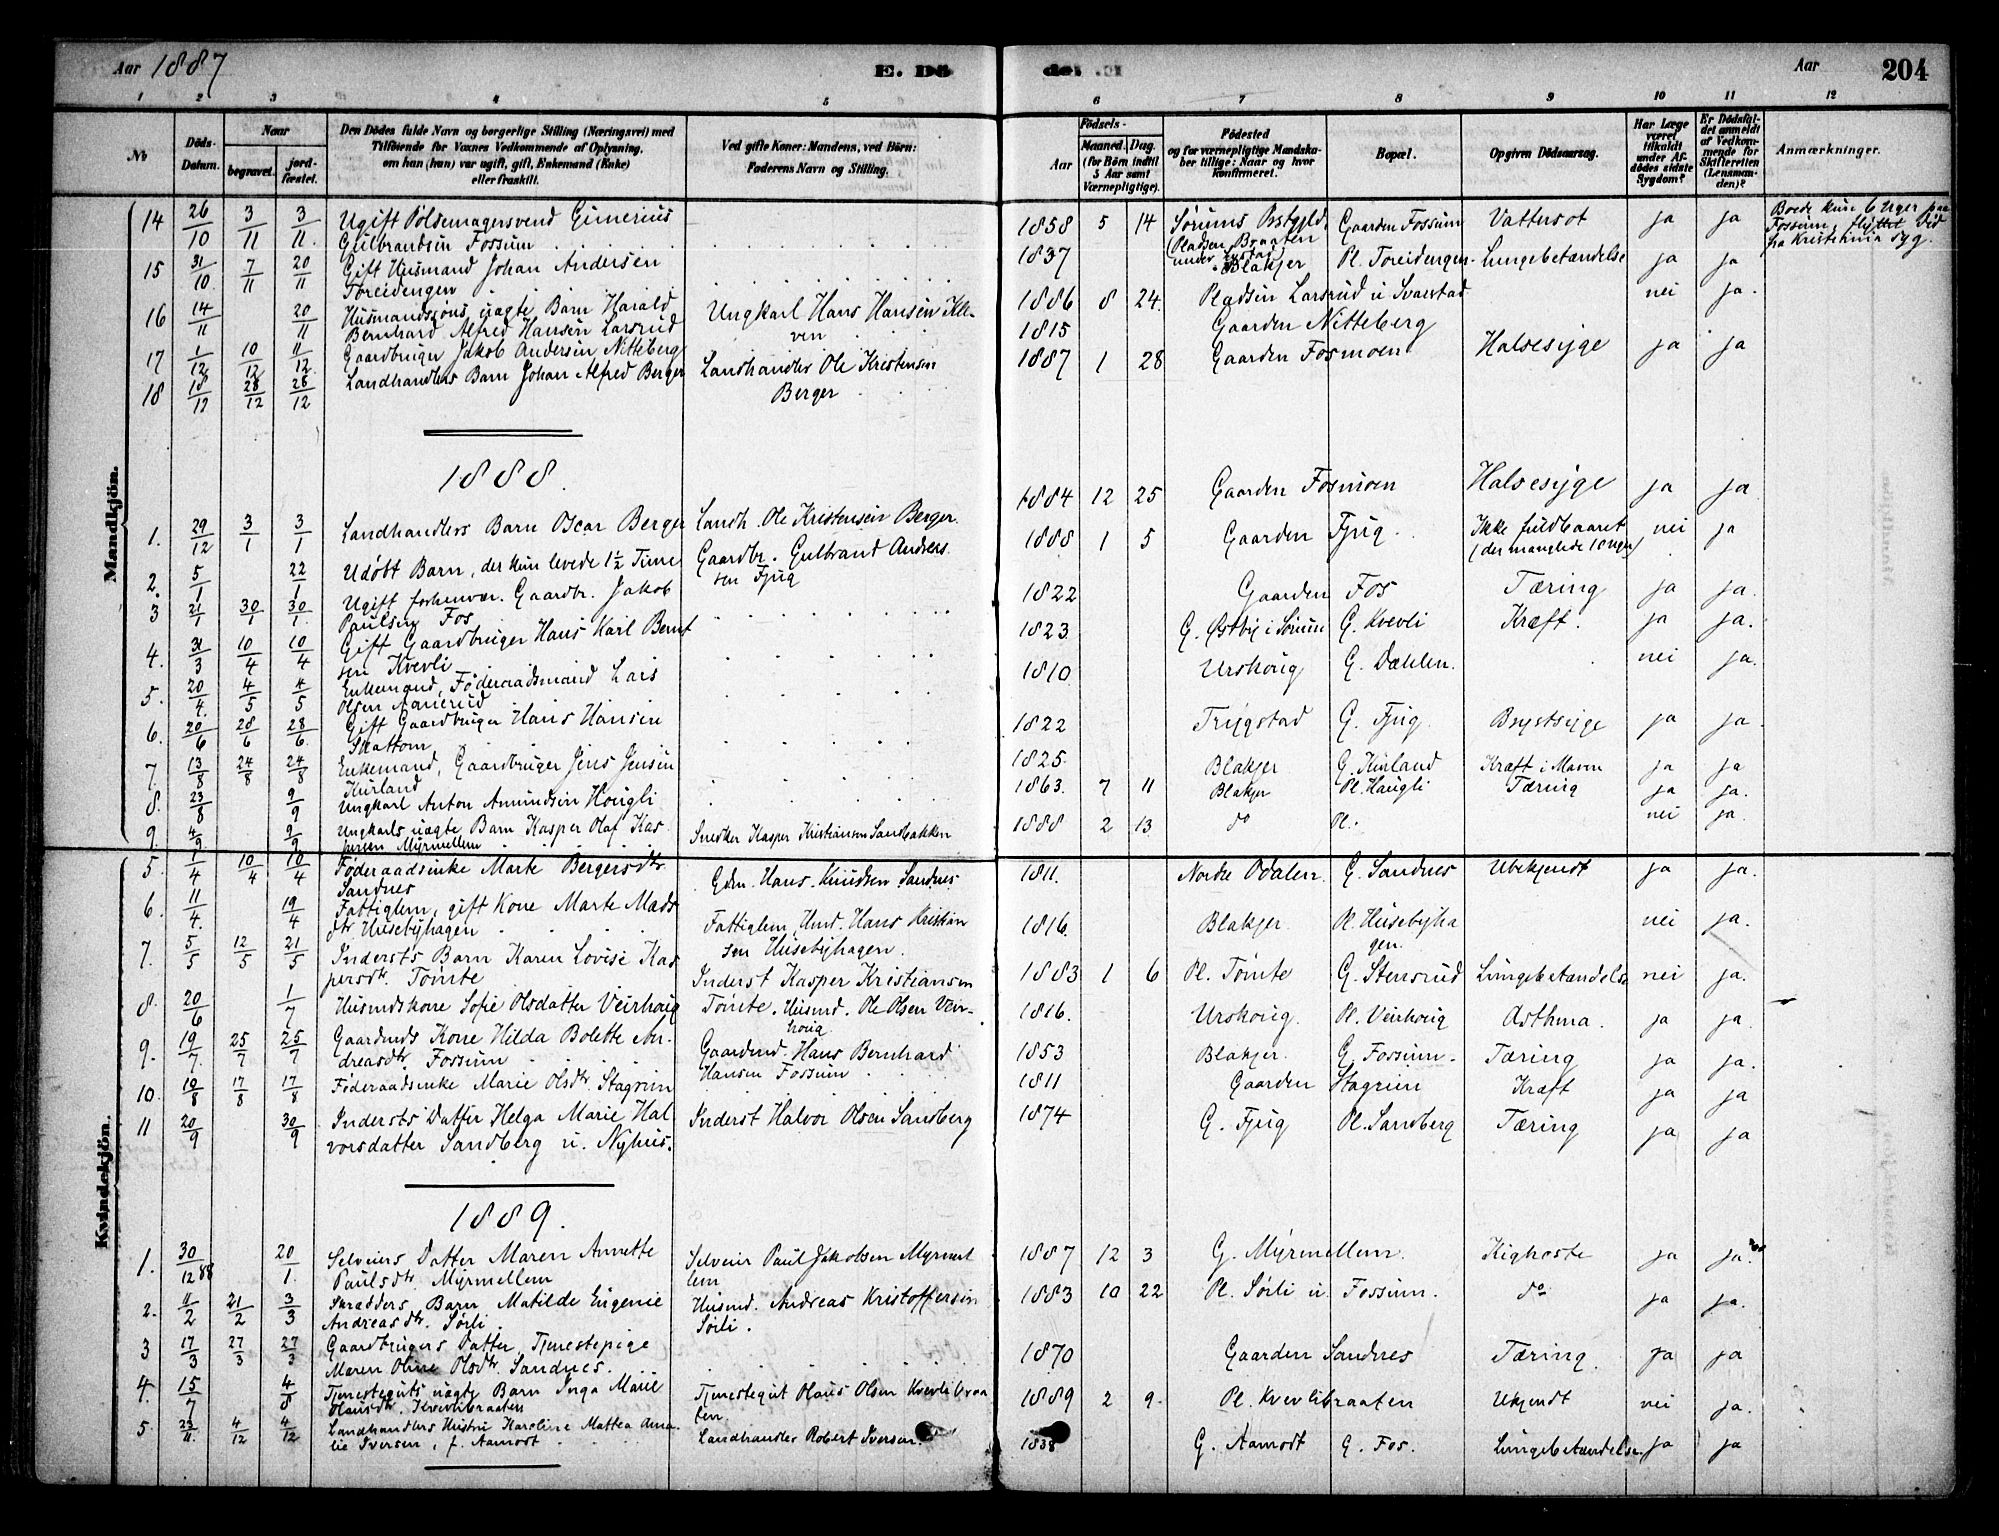 Aar 1887
E. Dö
de. E.
Aar
204
1 2 3 4 5 6 7 8 9 10 11 12
No
Döds-Datum.
Naar
begravet.
jord-fæstet.
Den Dödes fulde Navn og borgerlige Stilling (Næringsvei) med
Tilföiende for Voxnes Vedkommende af Oplysning,
om han (hun) var ugift, gift, Enkemand (Enke)
eller fraskilt.
Ved gifte Koner: Mandens, ved Börn:
Faderens Navn og Stilling.
Födsels-
Aar
Maaned. Dag.
(for Börn indtil
5 Aar samt
Værnepligtige).
Födested
og for værnepligtige Mandska-
ber tillige: Naar og hvor
konfirmeret.
Bopæl.
Opgiven Dödsaarsag.
Har Læge
været
tilkaldt
under Af-
dödes sidste
Sygdom?
Er Dödsfal-
det anmeldt
af Vedkom-
mende for
Skifteretten
(Lensman-
den)?
Anmærkninger.
Mandkjön.
14 26/10 3/11 3/11 Ugift Pølsemagersvend Gunerius
Gulbrandsen Fossum 1858 5 14 Sørums Pstgjld. Gaarden Fossum Vattersot ja ja Boede kun 6 Uger paa
Fossum, flyttet did
fra Kristiania syg.
15 31/10 7/11 20/11 Gift Husmand Johan Andersen
Toreidengen 1837 Pladsen Braaten
under
Blakjer Pl. Toreidengen Lungebetændelse ja ja
16 14/11 20/11 Husmandssøns uægte Barn Harald
Bernhard Alfred Hansen Larsrud Ungkarl Hans Hansen Kle-
ven 1886 8 24 Pladsen Larsrud u Svarstad nei ja.
17 1/12 10/12 11/12 Gaardbruger Jakob Andersen Nitteberg 1815 Gaarden Nitteberg
18 18/12 28/12 28/12 Landhandlers Barn Johan Alfred Berger Landhandler Ole Kristensen
Berger 1887 1 28 Gaarden Fosmoen Halsesyge ja ja
1888.
1. 29/12 3/1 3/1 Landhandlers Barn Oscar Berger Landh. Ole Kristensen Berger 1884 12 25 Gaarden Fosmoen Halsesyge ja ja
2. 5/1 22/1 Udøbt Barn, der kun levede 1½ Time Gaardbr. Gulbrand Anders
sen Fjug 1888 1 5 Gaarden Fjug Ikke fuldbaaret
(der manglede 10 uger) nei ja
3 21/1 30/1 30/1 Ugift forhenvær. Gaardbr. Jakob
Paulsen Fos 1822 Gaarden Fos Tæring ja ja.
4. 31/3 10/4 10/4 Gift Gaardbruger Hans Karl Bernt
sen Kvevli 1823 G. Østby i Sørum G. Kvevli Kræft. ja ja.
5. 20/4. 4/5 4/5 Enkemand, Föderaadsmand Lars
Olsen Aanerud 1810 Urskoug G. Dahlen. nei ja.
6. 20/6 28/6 28/6. Gift Gaardbruger Hans Hansen
Skattom 1822 Trygstad G. Fjug. Brystsyge ja ja.
7. 13/8 24/8 24/8 Enkemand, Gaardbruger Jens Jensen
Kurland 1825. Blakjer G. Kurland Kræft i Maven ja ja
8. 23/8 9/9 Ungkarl Anton Amundsen Hougli 1863. 7 11 Blakjer Pl. Haugli Tæring ja ja.
9. 4/9 9/9 Ungkarls uægte Barn Kasper Olaf Kas
persen Myrmellem Snedker Kasper Kristiansen Sandbakken 1888 2 13 do Pl. nei ja.
Kvindekjön.
5. 1/4 10/4 10/4 Føderaadsenke Marte Bergersdtr
Sandnes Gdm. Hans Knudsen Sandnes 1811. Nordre Odalen. G. Sandnes Ubekjendt ja ja.
6. 11/4. 19/4 Fattiglem, gift Kone Marte Mads
dtr Husebyhagen Fattiglem, Hmd. Hans Kristian
sen Husebyhagen. 1816. Blakjer. Pl. Husebyha
gen. nei ja.
7. 5/5 12/5 21/5 Indersts Barn Karen Lovise Kas
persdtr. Tomte Inderst Kasper Kristiansen
Tomte. 1883 1 6 Pl. Tomte G. Stensrud Lungebetændelse nei ja.
8. 20/6 1/7 Husmdskone Sofie Olsdatter Veirhoug Husmd. Ole Olsen Veir-
houg 1816. Urskoug. Pl. Veirhoug Asthma. ja ja.
9. 19/7. 25/7 25/7 Gaardmds Kone Hilda Bolette An-
dreasdtr Fossum Gaardmd. Hans Bernhard
Hansen Fossum 1853 Blakjer. G. Fossum. Tæring ja ja.
10. 10/8 17/8 17/8 Föderaadsenke Marie Olsdtr. Stagrim 1811 Gaarden Stagrim Kræft ja ja
11 20/9 30/9 Indersts Datter Helga Marie Hal
vorsdatter Sandberg u. Nyhus. Inderst Halvor Olsen Sandberg 1874 G. Fjug Pl. Sandberg Tæring ja ja
1889.
1. 30/12 88 20/1. Selveiers Datter Maren Annette
Paulsdtr Myrmellem Selveier Paul Jakobsen Myrmel
lem 1887 12 3 G. Myrmellem. Kighoste ja ja.
2. 11/2 21/2 3/3 Skradders Barn Matilde Eugenie
Andreasdtr. Sørli. Husmd. Andreas Kristoffersen
Sørli. 1883 10 22 Pl. Sørli u. Fossum. do. ja ja.
3 17/3 27/3 27/3 Gaardbrugers Datter, Tjenestepige
Maren Oline Olsdtr. Sandnes. 1870 Gaarden Sandnes Tæring. ja ja
4. 15/7 4/8 Tjenesteguts uægte Barn Inga Marie
Olausdtr. Kvevlibraaten Tjenestegut Olaus Olsen Kvevlibraa
ten. 1889 2 9. Pl. Kvevlibraaten Ukjendt nei ja.
5. 23/11. 4/12 4/12 Landhandlers Hustru Karoline Mattea Ama
lie Iversen, f. Aamodt Landhandler Robert Iversen. 1838 G. Aamodt G. Fos. Lungebetændelse. ja ja